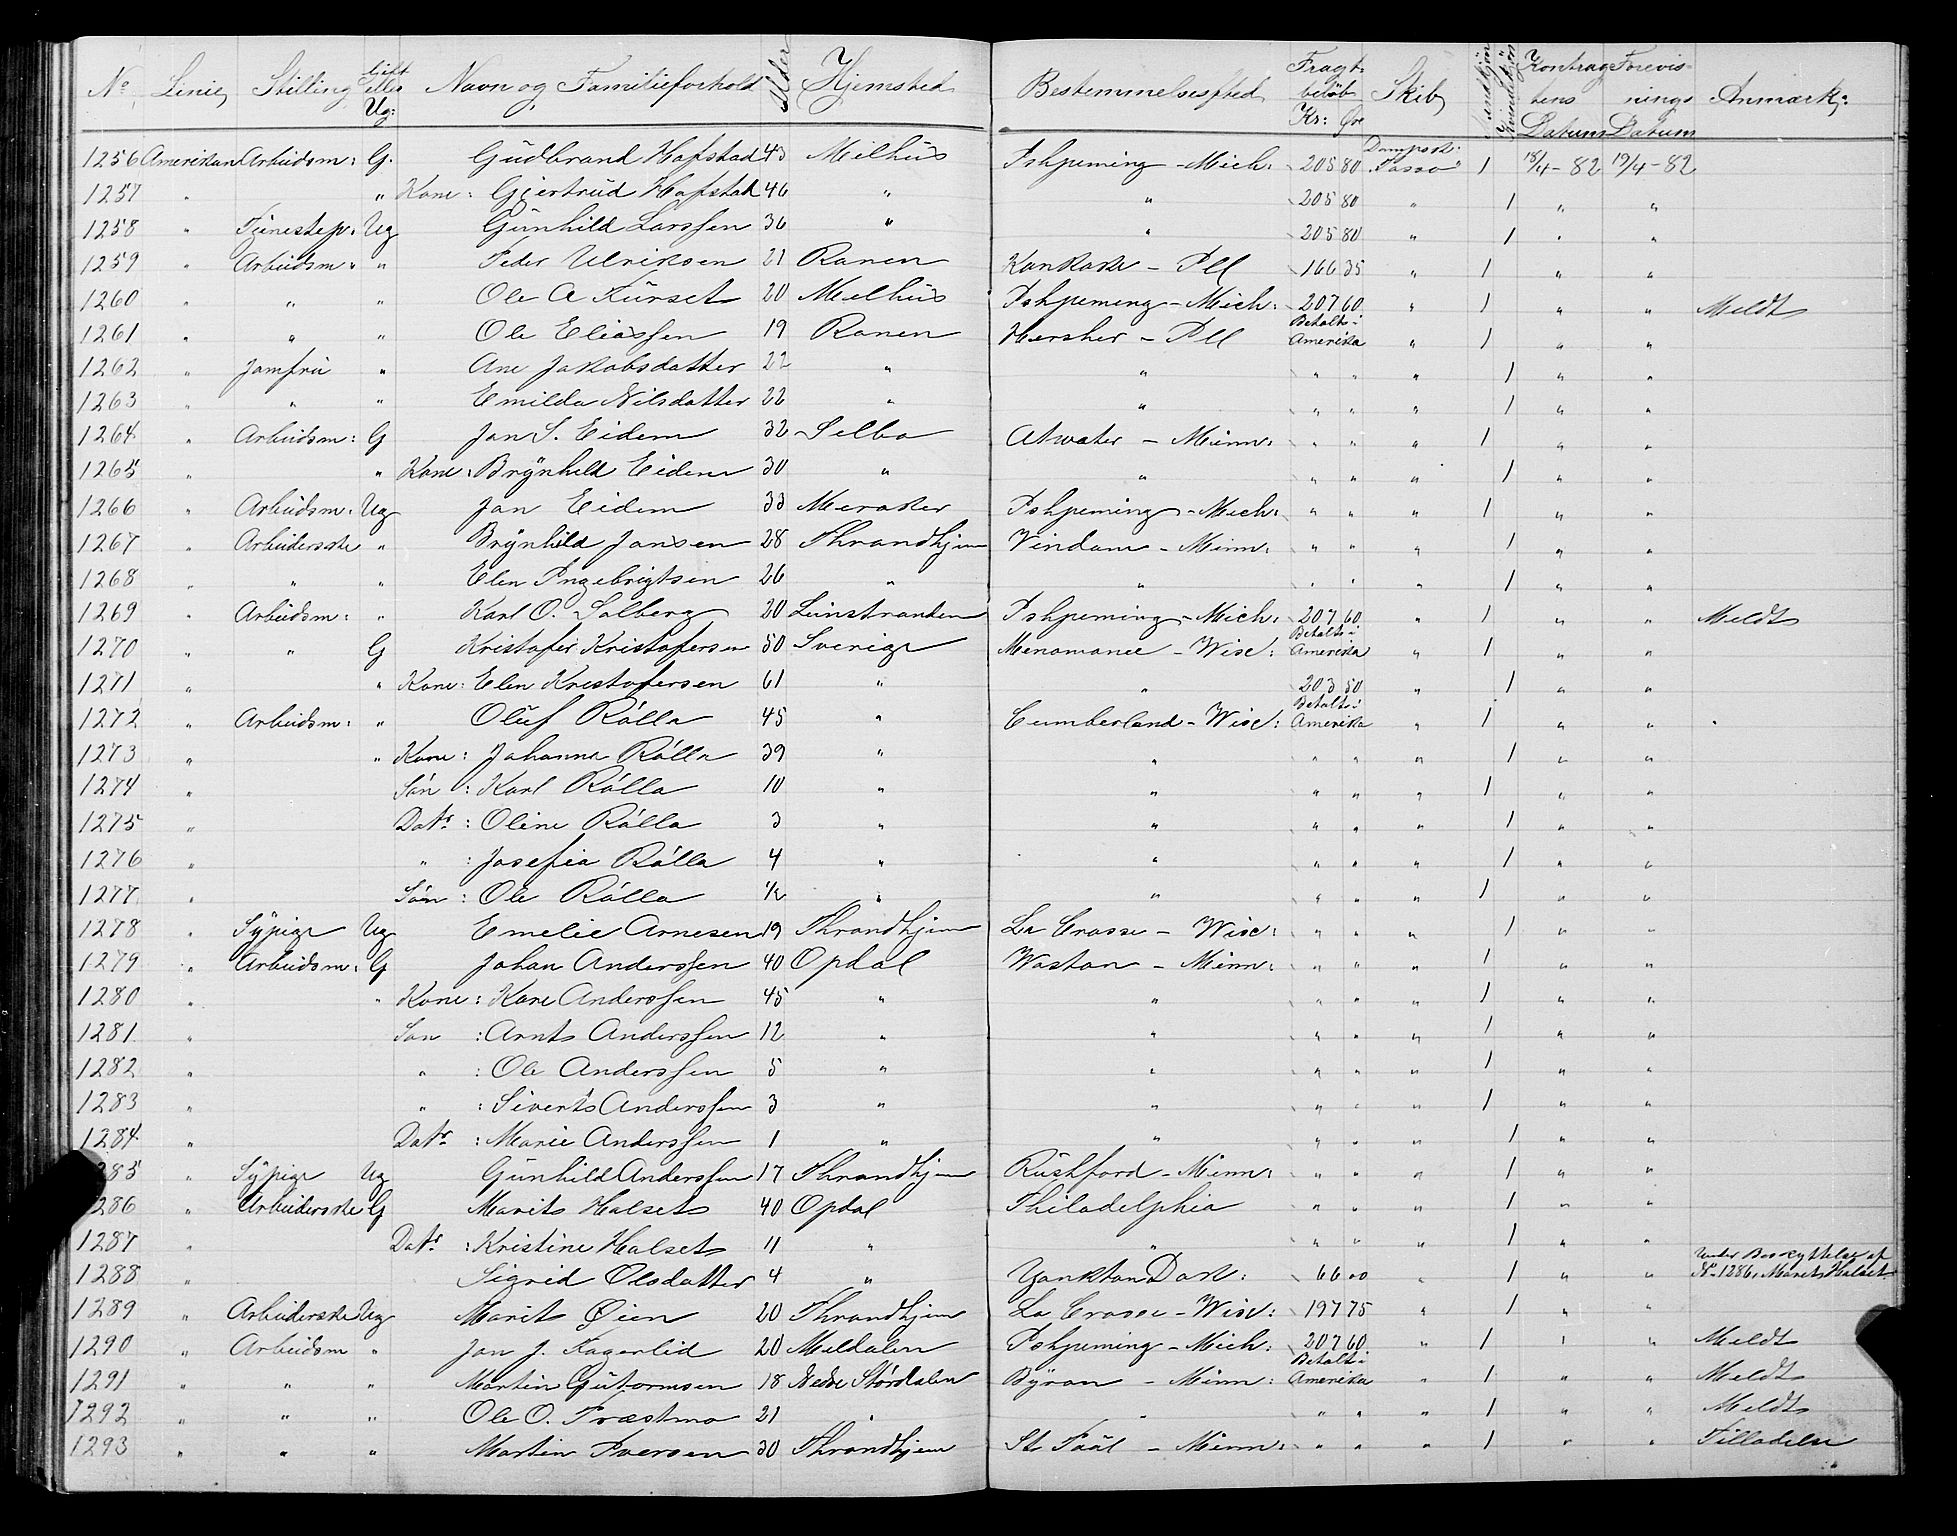 No Linie Stilling Gift eller Ug: Navn og Familieforhold Alder Hjemsted Bestemmelsessted Fragtbeløb Kr: Øre Skib Mandkjön Kvindekjön Kontragtens Datum Forevisnings Datum Anmærk:
1256 Amerikan Arbeidsm: G. Gudbrand Hofstad 43 Melhus Ishpeming - Mich: 205 80 Dampsk: Tasso 1 18/4 - 82 19/4 - 82
1257 " " Kone: Gjertrud Hofstad 46 " " 205 80 " 1 " "
1258 " Tjenestep: Ug Gunhild Larssen 36 " " 205 80 " 1 " "
1259 " Arbeidsm " " Peder Ulriksen 21 Ranen Kankake - Ill 166 35 " 1 " "
1260 " " " Ole A Kurset 20 Melhus Ishpeming - Mich: 207 60 " 1 " " Meldt
1261 " " " Ole Eliassen 19 Ranen Hersher - Ill Betalt i Amerika " 1 " "
1262 " Jomfru " Ane Jakobsdatter 22 " " " " " 1 " "
1263 " " " Emilda Nilsdatter 22 " " " " " 1 " "
1264 " Arbeidsm: G Jon S. Eidem 32 Selbo Atwater - Minn: " " " 1 " "
1265 " " Kone: Brynhild Eidem 30 " " " " " 1 " "
1266 " Arbeidsm: Ug Jon Eidem 33 Meraker Ishpeming - Mich: " " " 1 " "
1267 " Arbeiderske " Brynhild Jonsen 28 Thrandhjem Vindom - Minn: " " " 1 " "
1268 " " " Elen Ingebrigtsen 26 " " " " " 1 " "
1269 " Arbeidsm: " Karl O. Solberg 20 Leinstranden Ishpeming - Mich: 207 60 " 1 " " Meldt
1270 " " G Kristofer Kristofersen 50 Sverige Menomonee - Wisc: Betalt i Amerika " 1 " "
1271 " " Kone: Elen Kristofersen 61 " " 203 50 " 1 " "
1272 " Arbeidsm: " Oluf Rölla 45 " Cumberland - Wisc: Betalt i Amerika " 1 " "
1273 " " Kone: Johanna Rölla 39 " " " " " 1 " "
1274 " Sön: Karl Rölla 10 " " " " " 1 " "
1275 " Datr: Oline Rölla 3 " " " " " 1 " "
1276 " " : Josefia Rölla 4 " " " " " 1 " "
1277 " Sön: Ole Rölla 1/2 " " " " " 1 " "
1278 " Sypige Ug Emelie Arnesen 19 Thrandhjem La Crosse - Wisc: " " " 1 " "
1279 " Arbeidsm: G Johan Anderssen 40 Opdal Waston - Minn: " " " 1 " "
1280 " " Kone: Kari Anderssen 45 " " " " " 1 " "
1281 " Sön: Arnt Anderssen 12 " " " " " 1 " "
1282 " " : Ole Anderssen 5 " " " " " 1 " "
1283 " " : Sivert Anderssen 3 " " " " " 1 " "
1284 " Datr: Marie Anderssen 1 " " " " " 1 " "
285 " Sypige Ug Gunhild Anderssen 17 Thrandhjem Rushford - Minn: " " " 1 " "
286 " Arbeiderske G Marit Halset 40 Opdal Philadelphia " " " 1 " "
1287 " Datr: Kristine Halset 11 " " " " " 1 " "
1288 " Sigrid Olsdatter 4 " Yankton Dak: 66 00 " 1 " " Under Beskyttelse af No 1286, Marit Halset
1289 " Arbeiderske Ug Marit Øien 20 Thrandhjem La Crosse - Wisc: 197 75 " 1 " "
1290 " Arbeidsm " Jon J. Fagerlid 20 Meldalen Ishpeming - Mich: 207 60 " 1 " " Meldt
1291 " " " Martin Gutormsen 18 Nedre Størdalen Byron - Minn: Betalt i Amerika " 1 " " Meldt
1292 " " " Ole O. Præstmo 21 " " " " " 1 " " Meldt
1293 " " " Martin Iversen 30 Thrandhjem St Paul - Minn: " " " 1 " " Tilladelse